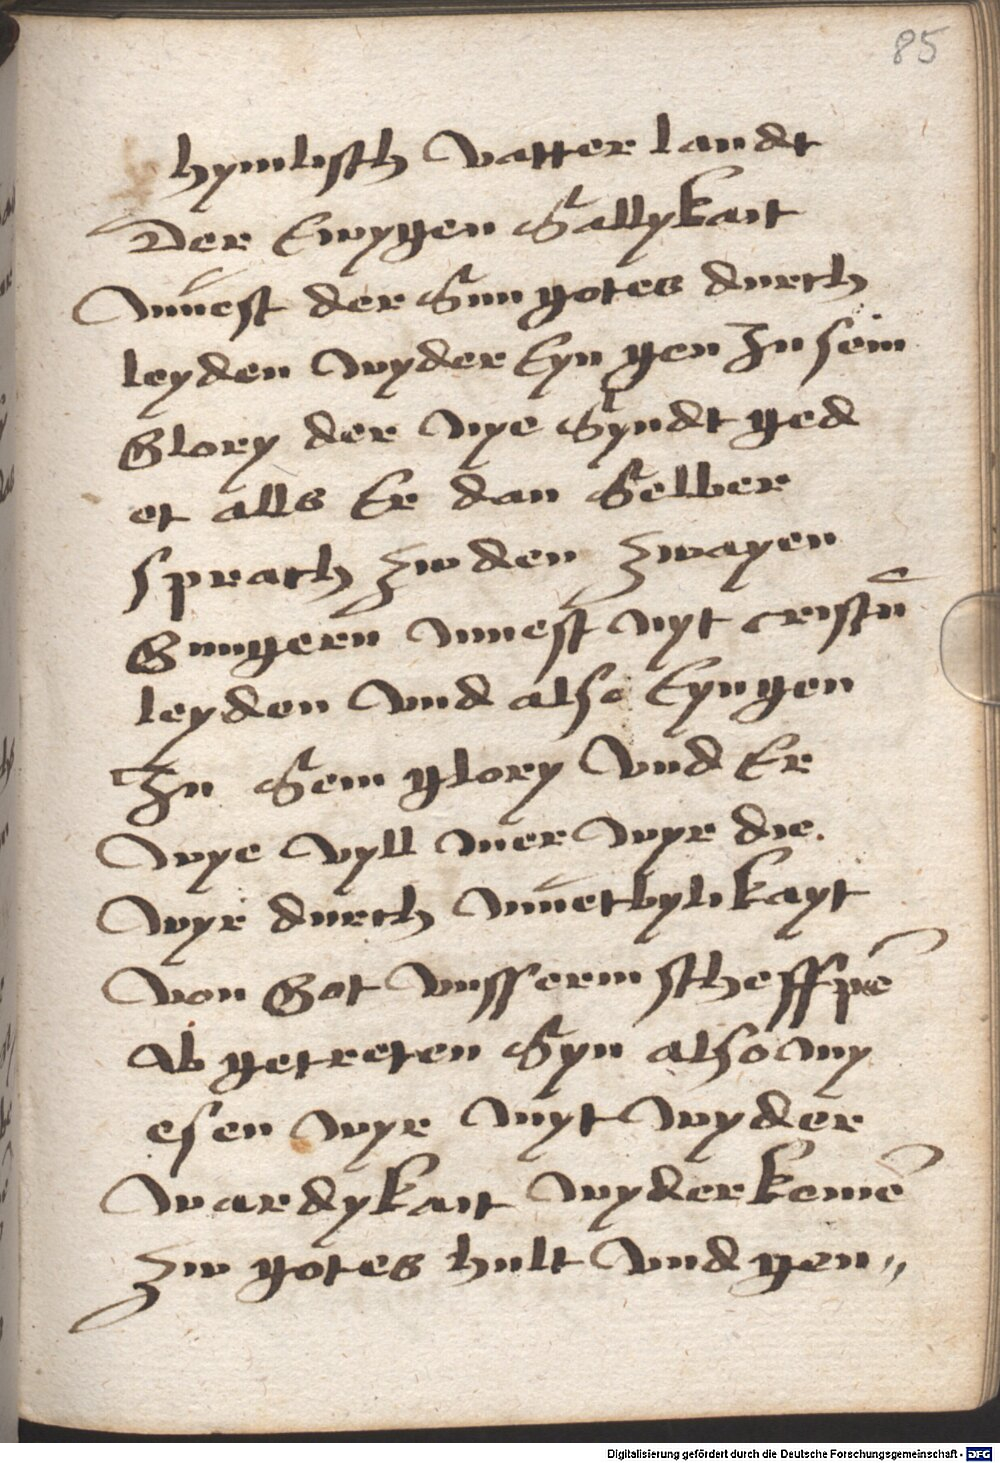 85
hymlisch vatter landt
Der Ewygen Sallykait
Muest der Sun gotes durch
leyden wyder Eyn gen Zu sein
Glory der nye Syndt ged
et alls Er dan Selber
sprach zw den zwayen
Gungern Muest nyt cristu̅
leyden vnd also Eyngen
Zu Sein glory vnd Er
wye vyll mer wyr die.
wyr durch muetbylikayt
von Got vnsserm scheffpe̅
ab getreten Syn also my
esen wyr myt wyder
wardykait wyder keme̅
zw gotes hult vnd gen〃
Digitalisierung gefördert durch die Deutsche Forschungsgemeinschaft - DFG